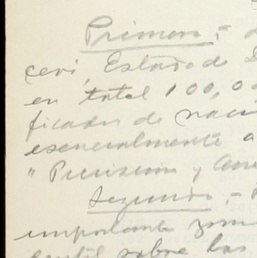 Primero,-
cerí, Estado de
en total 100,0
ficados de naci
esencialmente a
"Precisión y
Segundo,-
importante
sobre las